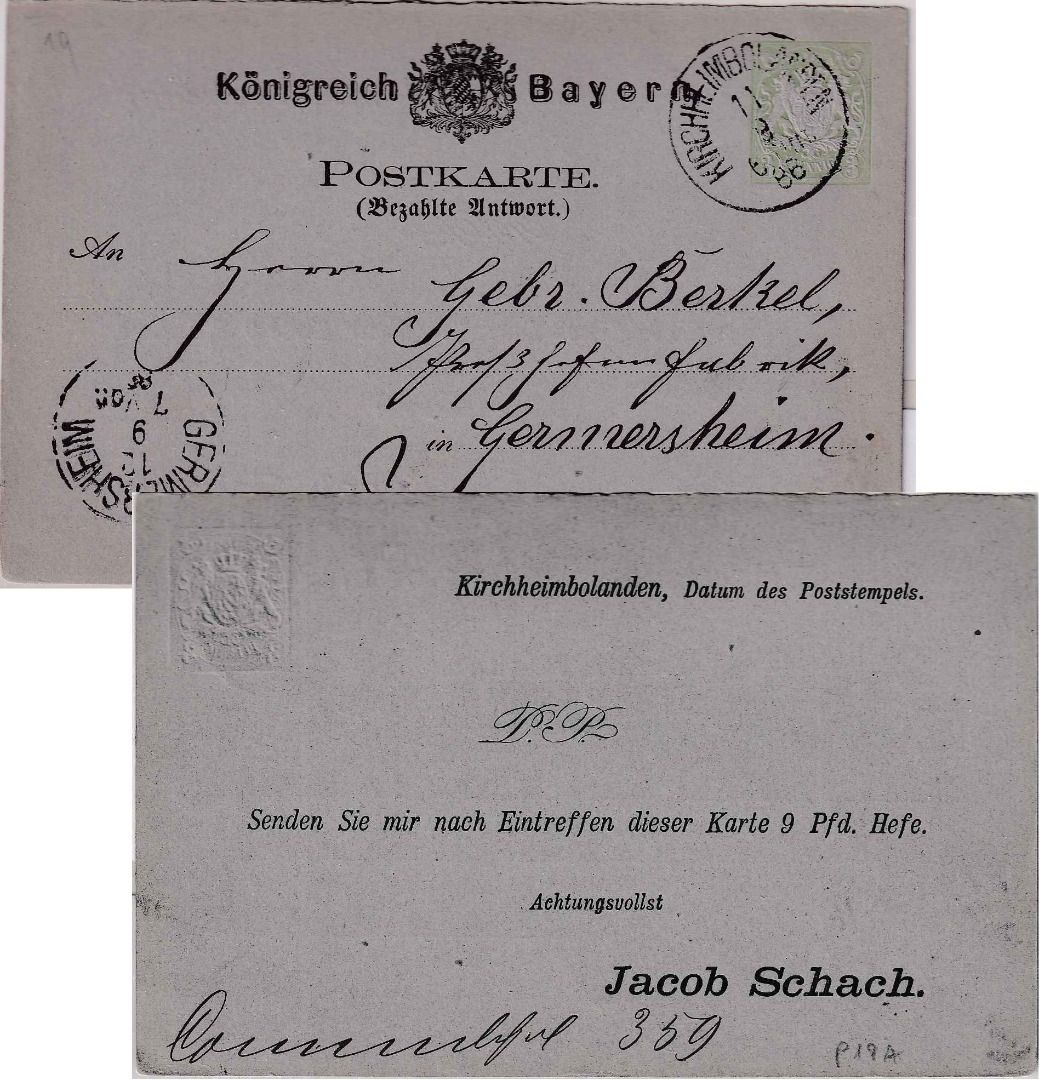 19
Königreich Bayern
KIRCHHEIMBOLANDEN
11
88
POSTKARTE.
(Bezahlte Antwort.)
An Herrn Gebr. Berkel,
Preßhefenfabrik,
in Germersheim.
GERMERSHEIM
7 Vor
9
Kirchheimbolanden, Datum des Poststempels.
P. P.
Senden Sie mir nach Eintreffen dieser Karte 9 Pfd. Hefe.
Achtungsvollst
Jacob Schach.
359
P19A